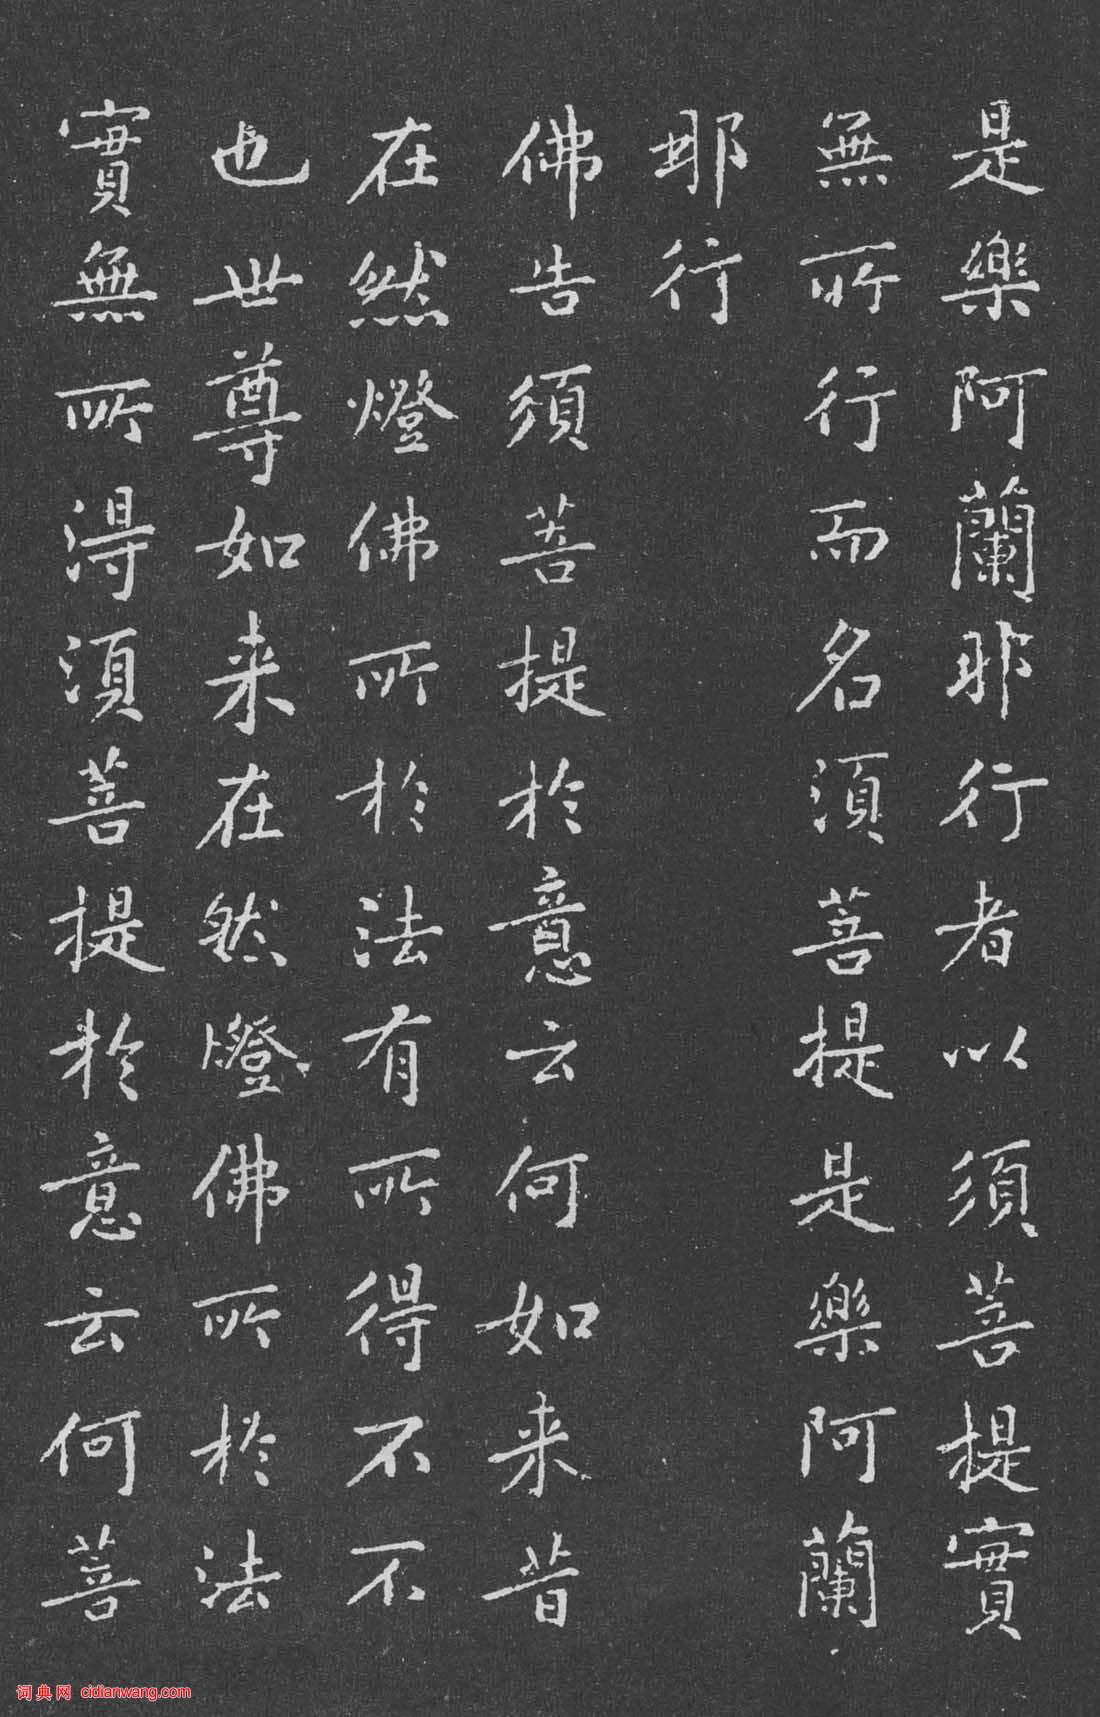 是樂阿蘭那行者以須菩提實
無所行而名須菩提是樂阿蘭
那行
佛告須菩提於意云何如来昔
在然燈佛所於法有所得不不
也世尊如来在然燈佛所於法
實無所得須菩提於意云何菩
词典网 cidianwang.com